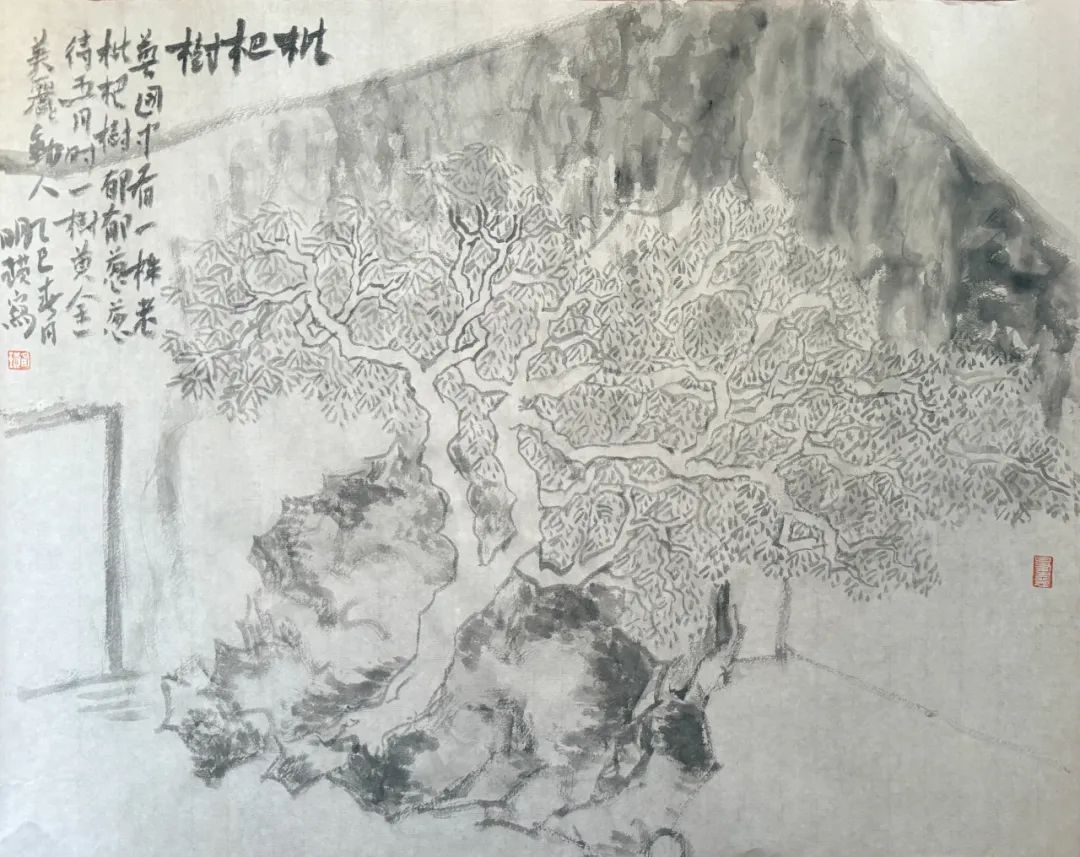 枇杷樹
藝圃中有一株老
枇杷樹郁郁葱葱
待五月时一樹黄金一
美麗動人
乙巳春月
明寫